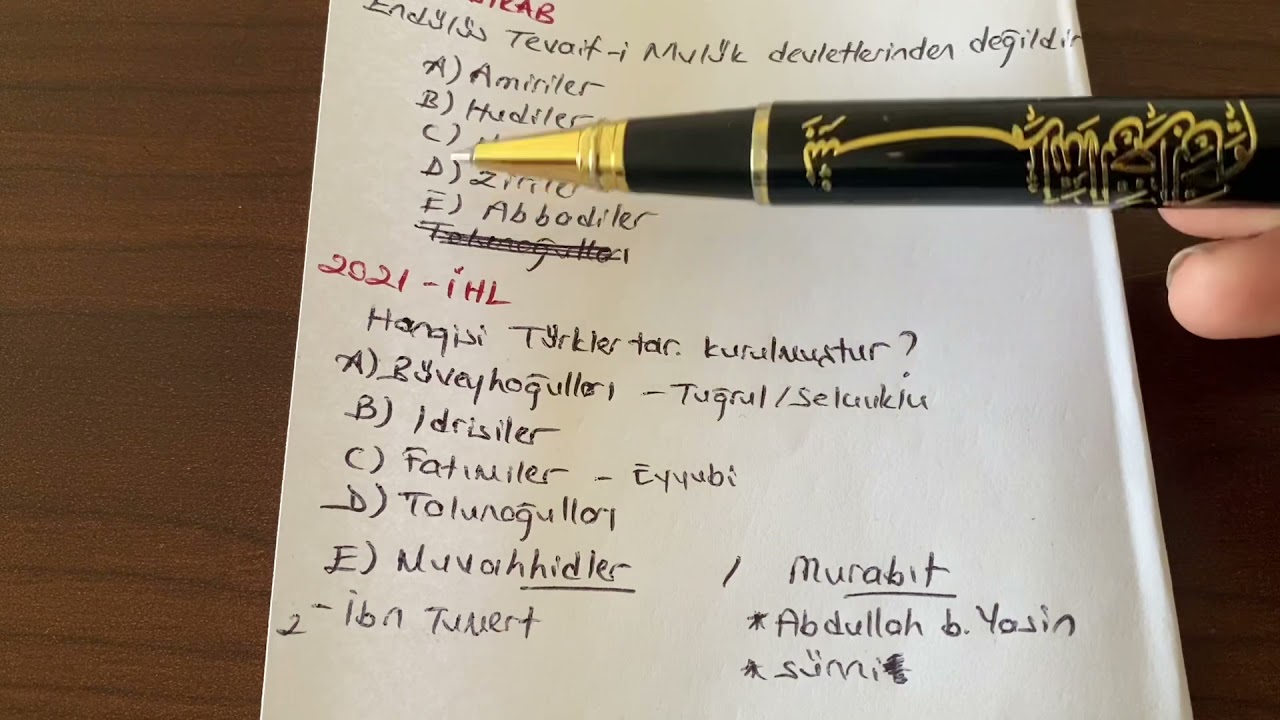 Endülüs Tevaif-i Mulûk devletlerinden değildir
A) Amiriler
B) Hudiler
C)
D) Ziriler
E) Abbadiler
2021 - İHL
Hangisi Türkler tar. kurulmuştur?
A) Büveyhoğulları - Tuğrul / Selçuklu
B) Idrisiler
C) Fatımiler - Eyyubi
D) Tolunoğulları
E) Muvahhidler / Murabıt
2 - İbn Tumert * Abdullah b. Yasin
* Sünni